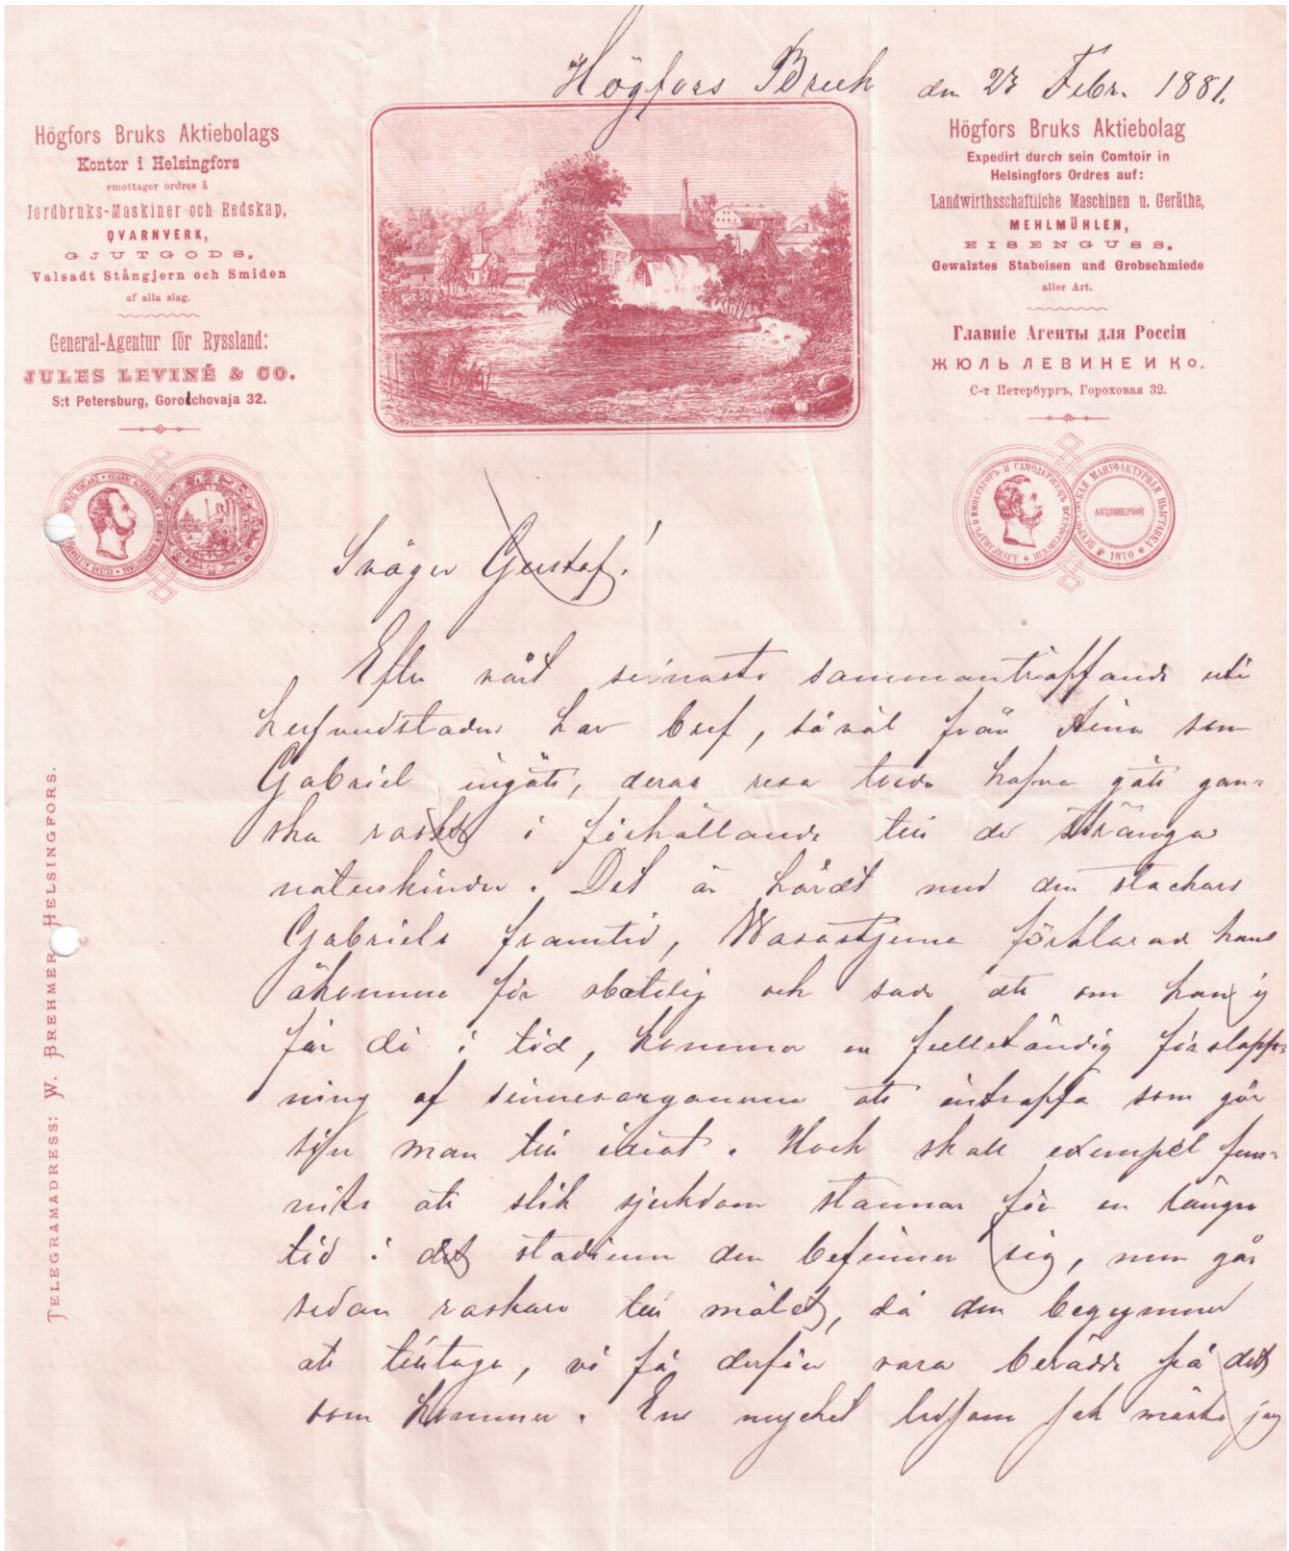 Högfors Bruk den 23 Febr. 1881.
Högfors Bruks Aktiebolags
Kontor i Helsingfors
emottager ordres å
Jordbruks-Maskiner och Redskap,
QVARNVERK,
GJUTGODS,
Valsadt Stångjern och Smiden
af alla slag.
General-Agentur för Ryssland:
JULES LEVINÉ & CO.
S:t Petersburg, Gorochovaja 32.
Högfors Bruks Aktiebolag
Expedirt durch sein Comtoir in
Helsingfors Ordres auf:
Landwirthsschaftliche Maschinen u. Geräthe,
MEHLMÜHLEN,
EISENGUSS,
Gewalztes Stabeisen und Grobschmiede
aller Art.
Главнiе Агенты для Россiи
ЖЮЛЬ ЛЕВИНЕ И Ко.
С-т Петербургъ, Гороховая 32.
МАНУФАКТУРНАЯ ВЫСТАВКА
АКЦIОНЕРНОЙ
1870
TELEGRAMADRESS: W. BREHMER HELSINGFORS.
Svåger Gustaf!
Efter vårt senaste sammanträffande uti
hufvudstaden har bref, såväl från Aina som
Gabriel ingått, deras resa torde hafva gått gan-
ska raskt i förhållande till de stränga
naturhinder. Det är hårdt med den stackars
Gabriels framtid, Wasastjerna förklarade hans
åkomma för obotlig och sade att om han ej
får dö i tid, kommer en fullständig förslapp-
ning af sinnesorganerna att inträffa som gör
man till idiot. Dock skall exempel fun-
nits att slik sjukdom stannar för en längre
tid i det stadium den befinner sig, men går
sedan raskare till målet, då den begynner
att tilltaga, vi få derför vara beredde på det
som kommer. En mycket ledsam sak måste jag